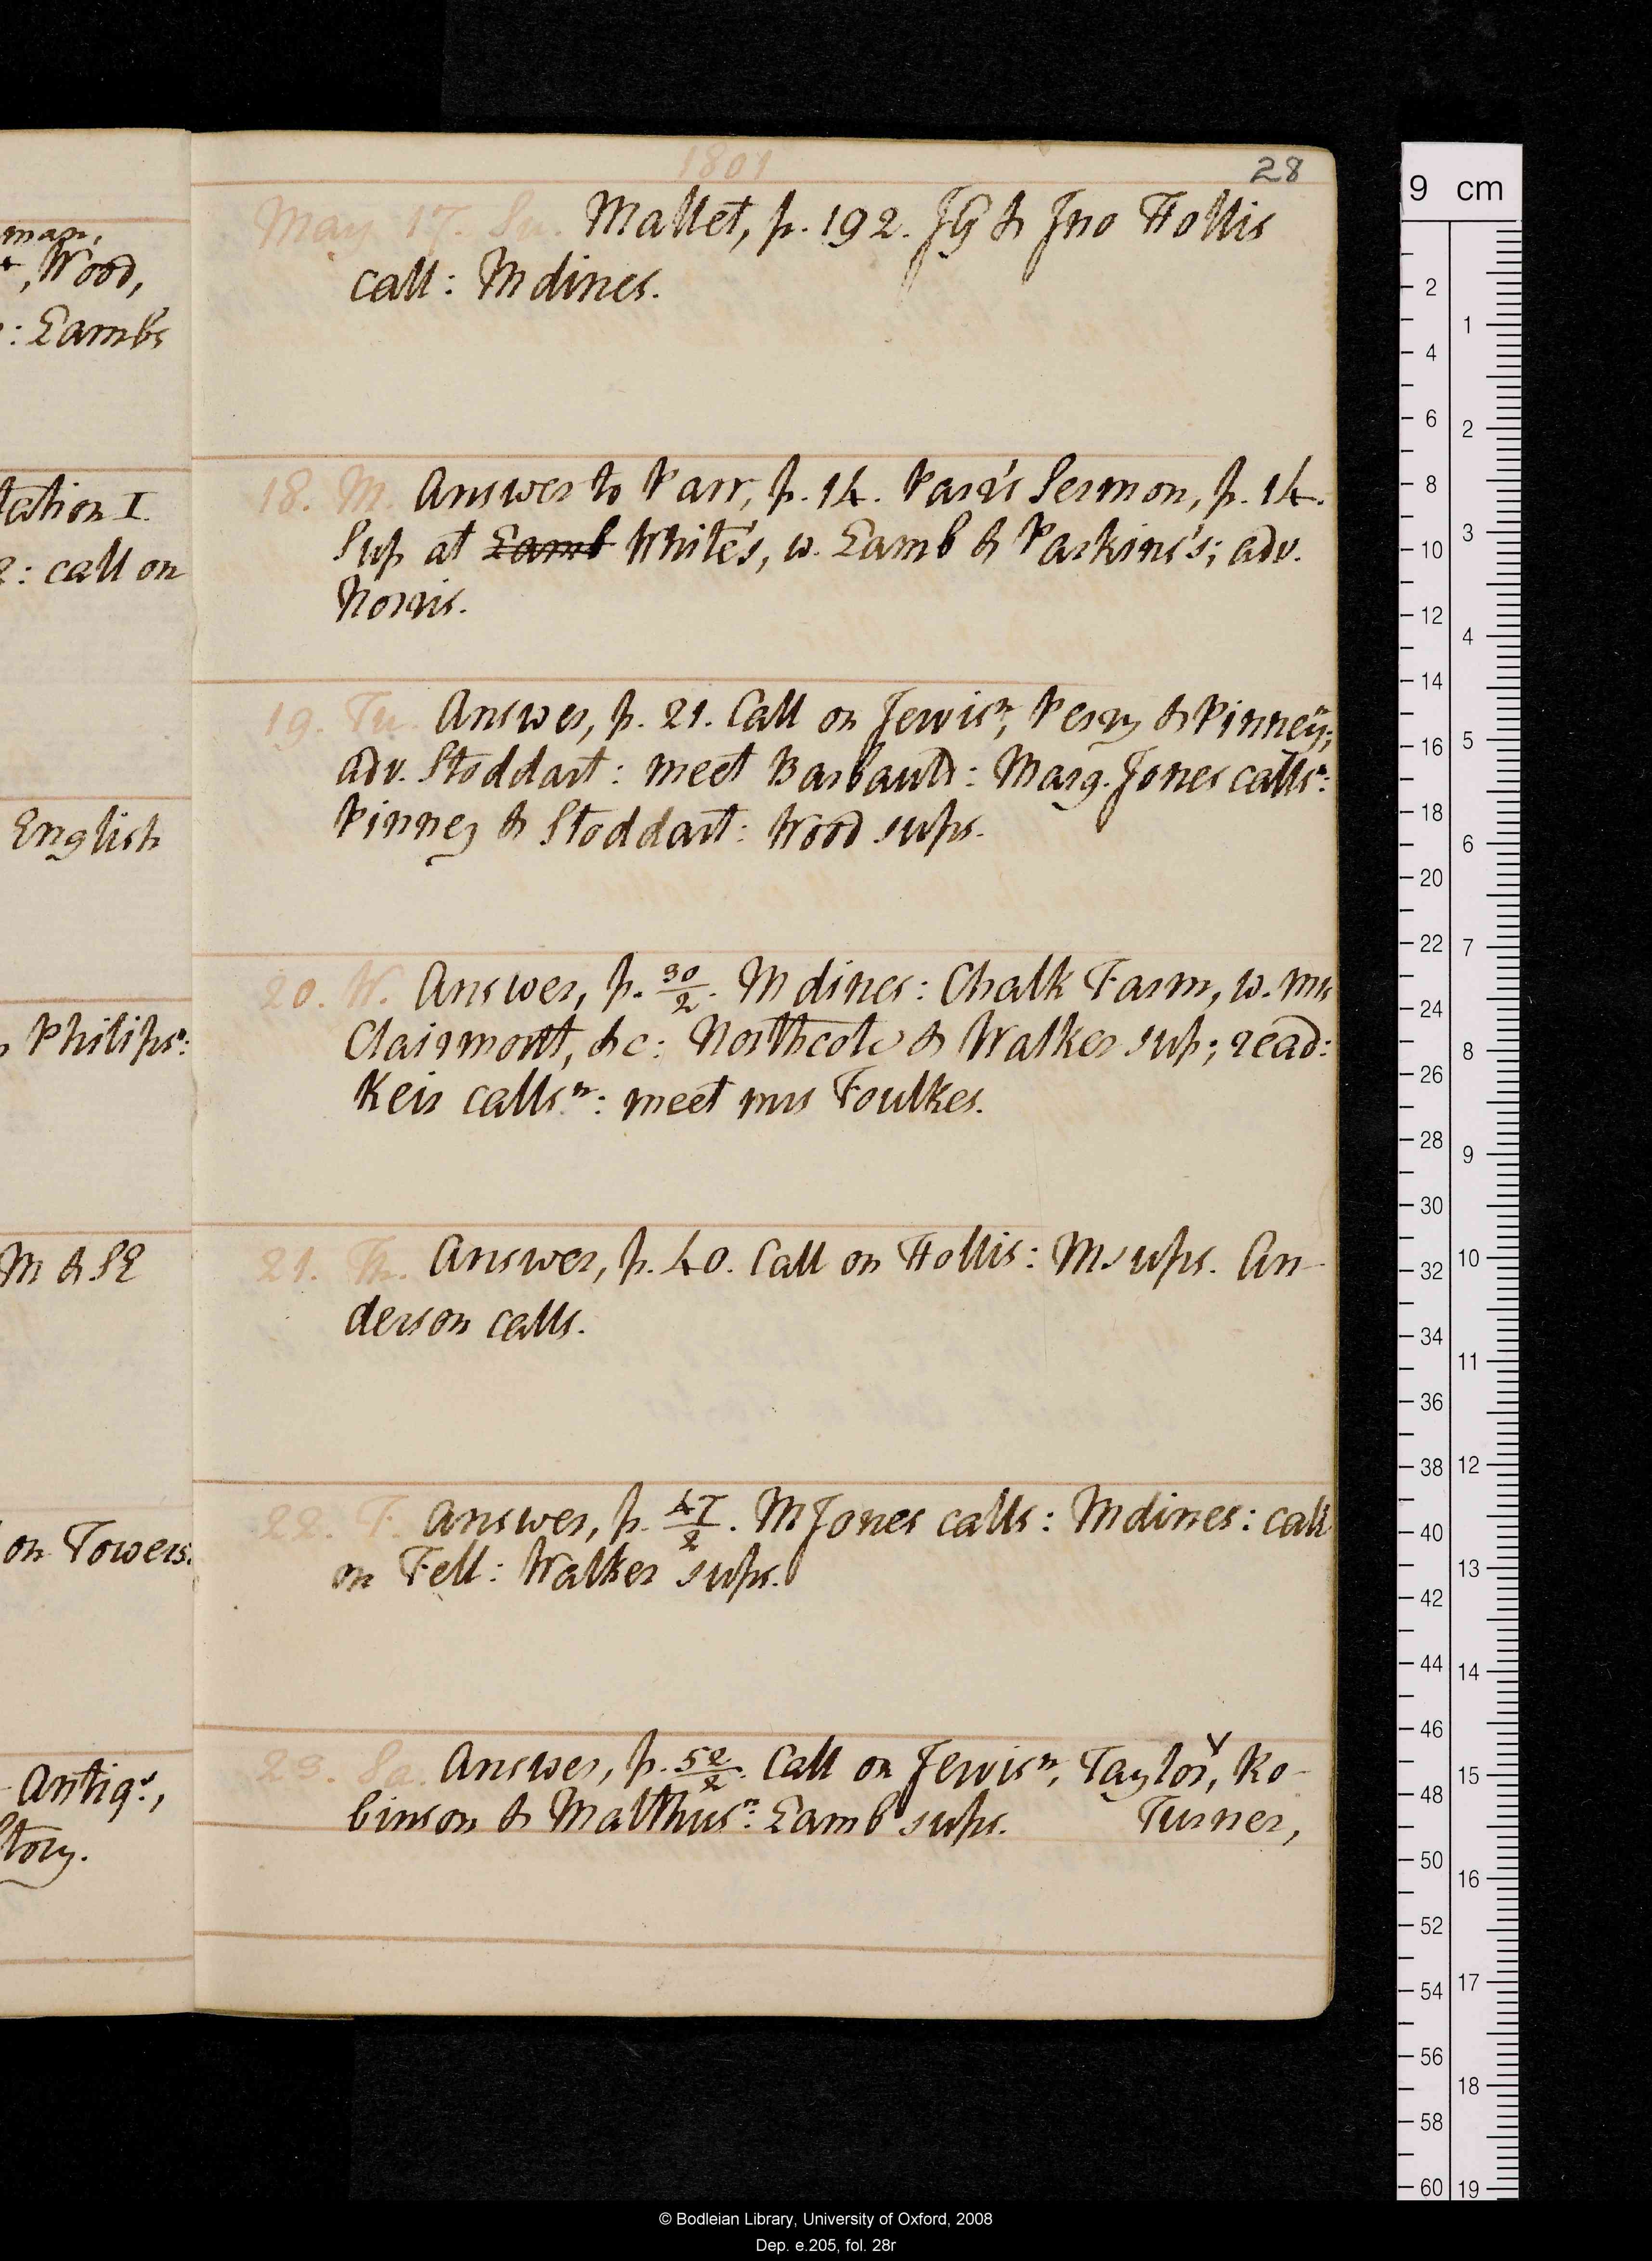 man,
, Wood,
: Lambs
tation I.
2: call on
English
Philipsⁿ:
M & SE
on Towers.
Antiqˢ,
story.
1801
28
May 17. Su. Mallet, p. 192. JG & Jno Hollis
call: M dines.
18. M. Answer to Parr, p. 14. Parr's Sermon, p. 14.
Sup at Lamb White's, w. Lamb & Parkins's; adv.
Norris.
19. Tu. Answer, p. 21. Call on Jervisⁿ, Perry & Pinneyⁿ;
adv. Stoddart: meet Barbauld: Marg. Jones callsⁿ:
Pinney & Stoddart: Wood sups.
20. W. Answer, p. 30/2. M dines: Chalk Farm, w. mrs
Clairmont, &c: Northcote & Walker sup; read:
Keir callsⁿ: meet mrs Foulkes.
21. Th. Answer, p. 40. Call on Hollis: M sups. An-
derson calls.
22. F. Answer, p. 47/2. M Jones calls: M dines: call
on Fell: Walker sups.
23. Sa. Answer, p. 52/2. Call on Jervisⁿ, Taylor, Ro-
binson & Malthusⁿ: Lamb sups. Turner,
9 cm
2
4
6
8
10
12
14
16
18
20
22
24
26
28
30
32
34
36
38
40
42
44
46
48
50
52
54
56
58
60
1
2
3
4
5
6
7
8
9
10
11
12
13
14
15
16
17
18
19
© Bodleian Library, University of Oxford, 2008
Dep. e.205, fol. 28r